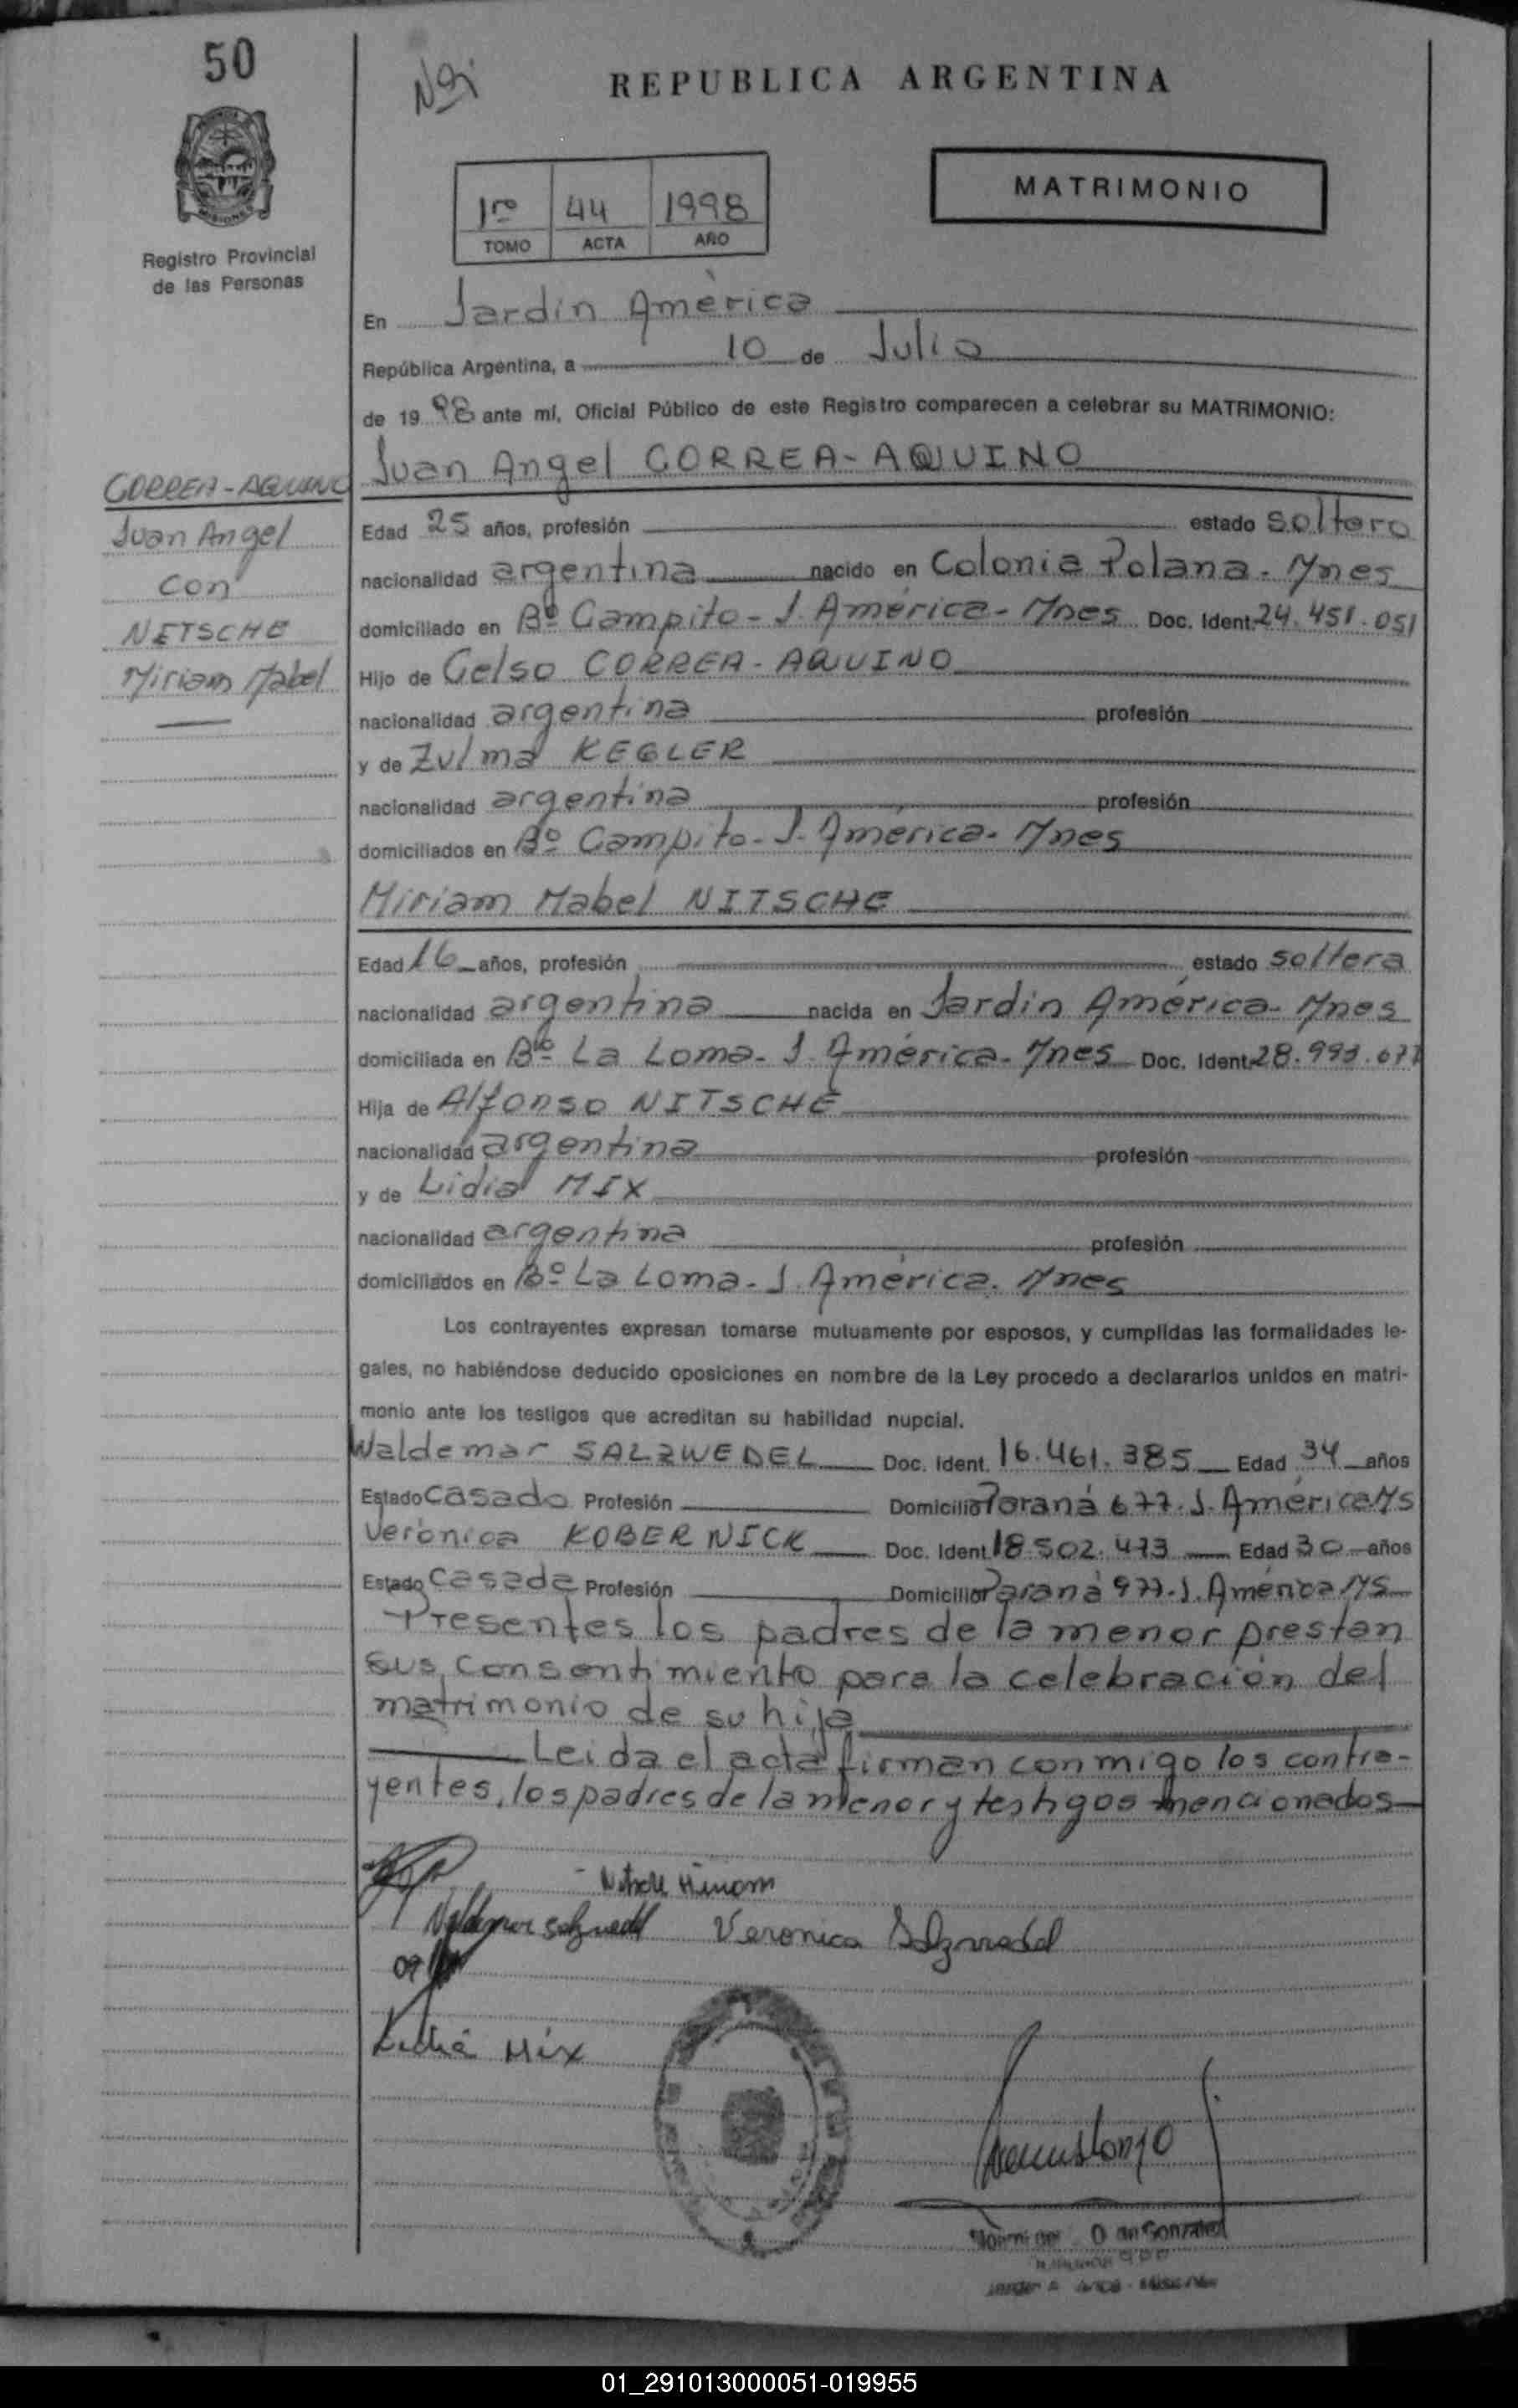 50
REPUBLICA ARGENTINA
MISIONES
Registro Provincial
de las Personas
1ro 44 1998
TOMO ACTA AÑO
MATRIMONIO
En Jardin América
República Argentina, a 10 de Julio
de 1998 ante mí, Oficial Público de este Registro comparecen a celebrar su MATRIMONIO:
Juan Angel CORREA-AQUINO
CORREA-AQUINO
Juan Angel
con
NITSCHE
Miriam Mabel
Edad 25 años, profesión estado soltero
nacionalidad argentina nacido en Colonia Polana - Mnes
domiciliado en Bº Campito - J. América - Mnes Doc. Ident. 24.451.051
Hijo de Celso CORREA-AQUINO
nacionalidad argentina profesión
y de Zulma KEGLER
nacionalidad argentina profesión
domiciliados en Bº Campito - J. América - Mnes
Miriam Mabel NITSCHE
Edad 16 años, profesión estado soltera
nacionalidad argentina nacida en Jardin América - Mnes
domiciliada en Bº La Loma - J. América - Mnes Doc. Ident. 28.993.677
Hija de Alfonso NITSCHE
nacionalidad argentina profesión
y de Lidia MIX
nacionalidad argentina profesión
domiciliados en Bº La Loma - J. América. Mnes
Los contrayentes expresan tomarse mutuamente por esposos, y cumplidas las formalidades le-
gales, no habiéndose deducido oposiciones en nombre de la Ley procedo a declararlos unidos en matri-
monio ante los testigos que acreditan su habilidad nupcial.
Waldemar SALZWEDEL Doc. Ident. 16.461.385 Edad 34 años
Estado casado Profesión Domicilio Paraná 677 - J. América Ms
Verónica KOBERNICK Doc. Ident. 18.502.473 Edad 30 años
Estado casada Profesión Domicilio Paraná 977 - J. América Ms
Presentes los padres de la menor prestan
sus consentimiento para la celebración del
matrimonio de su hija
Leida el acta firman conmigo los contra-
yentes, los padres de la menor y testigos mencionados
Nitsche Miriam
Waldemar Salzwedel Veronica Salzwedel
Lidia Mix
01_291013000051-019955